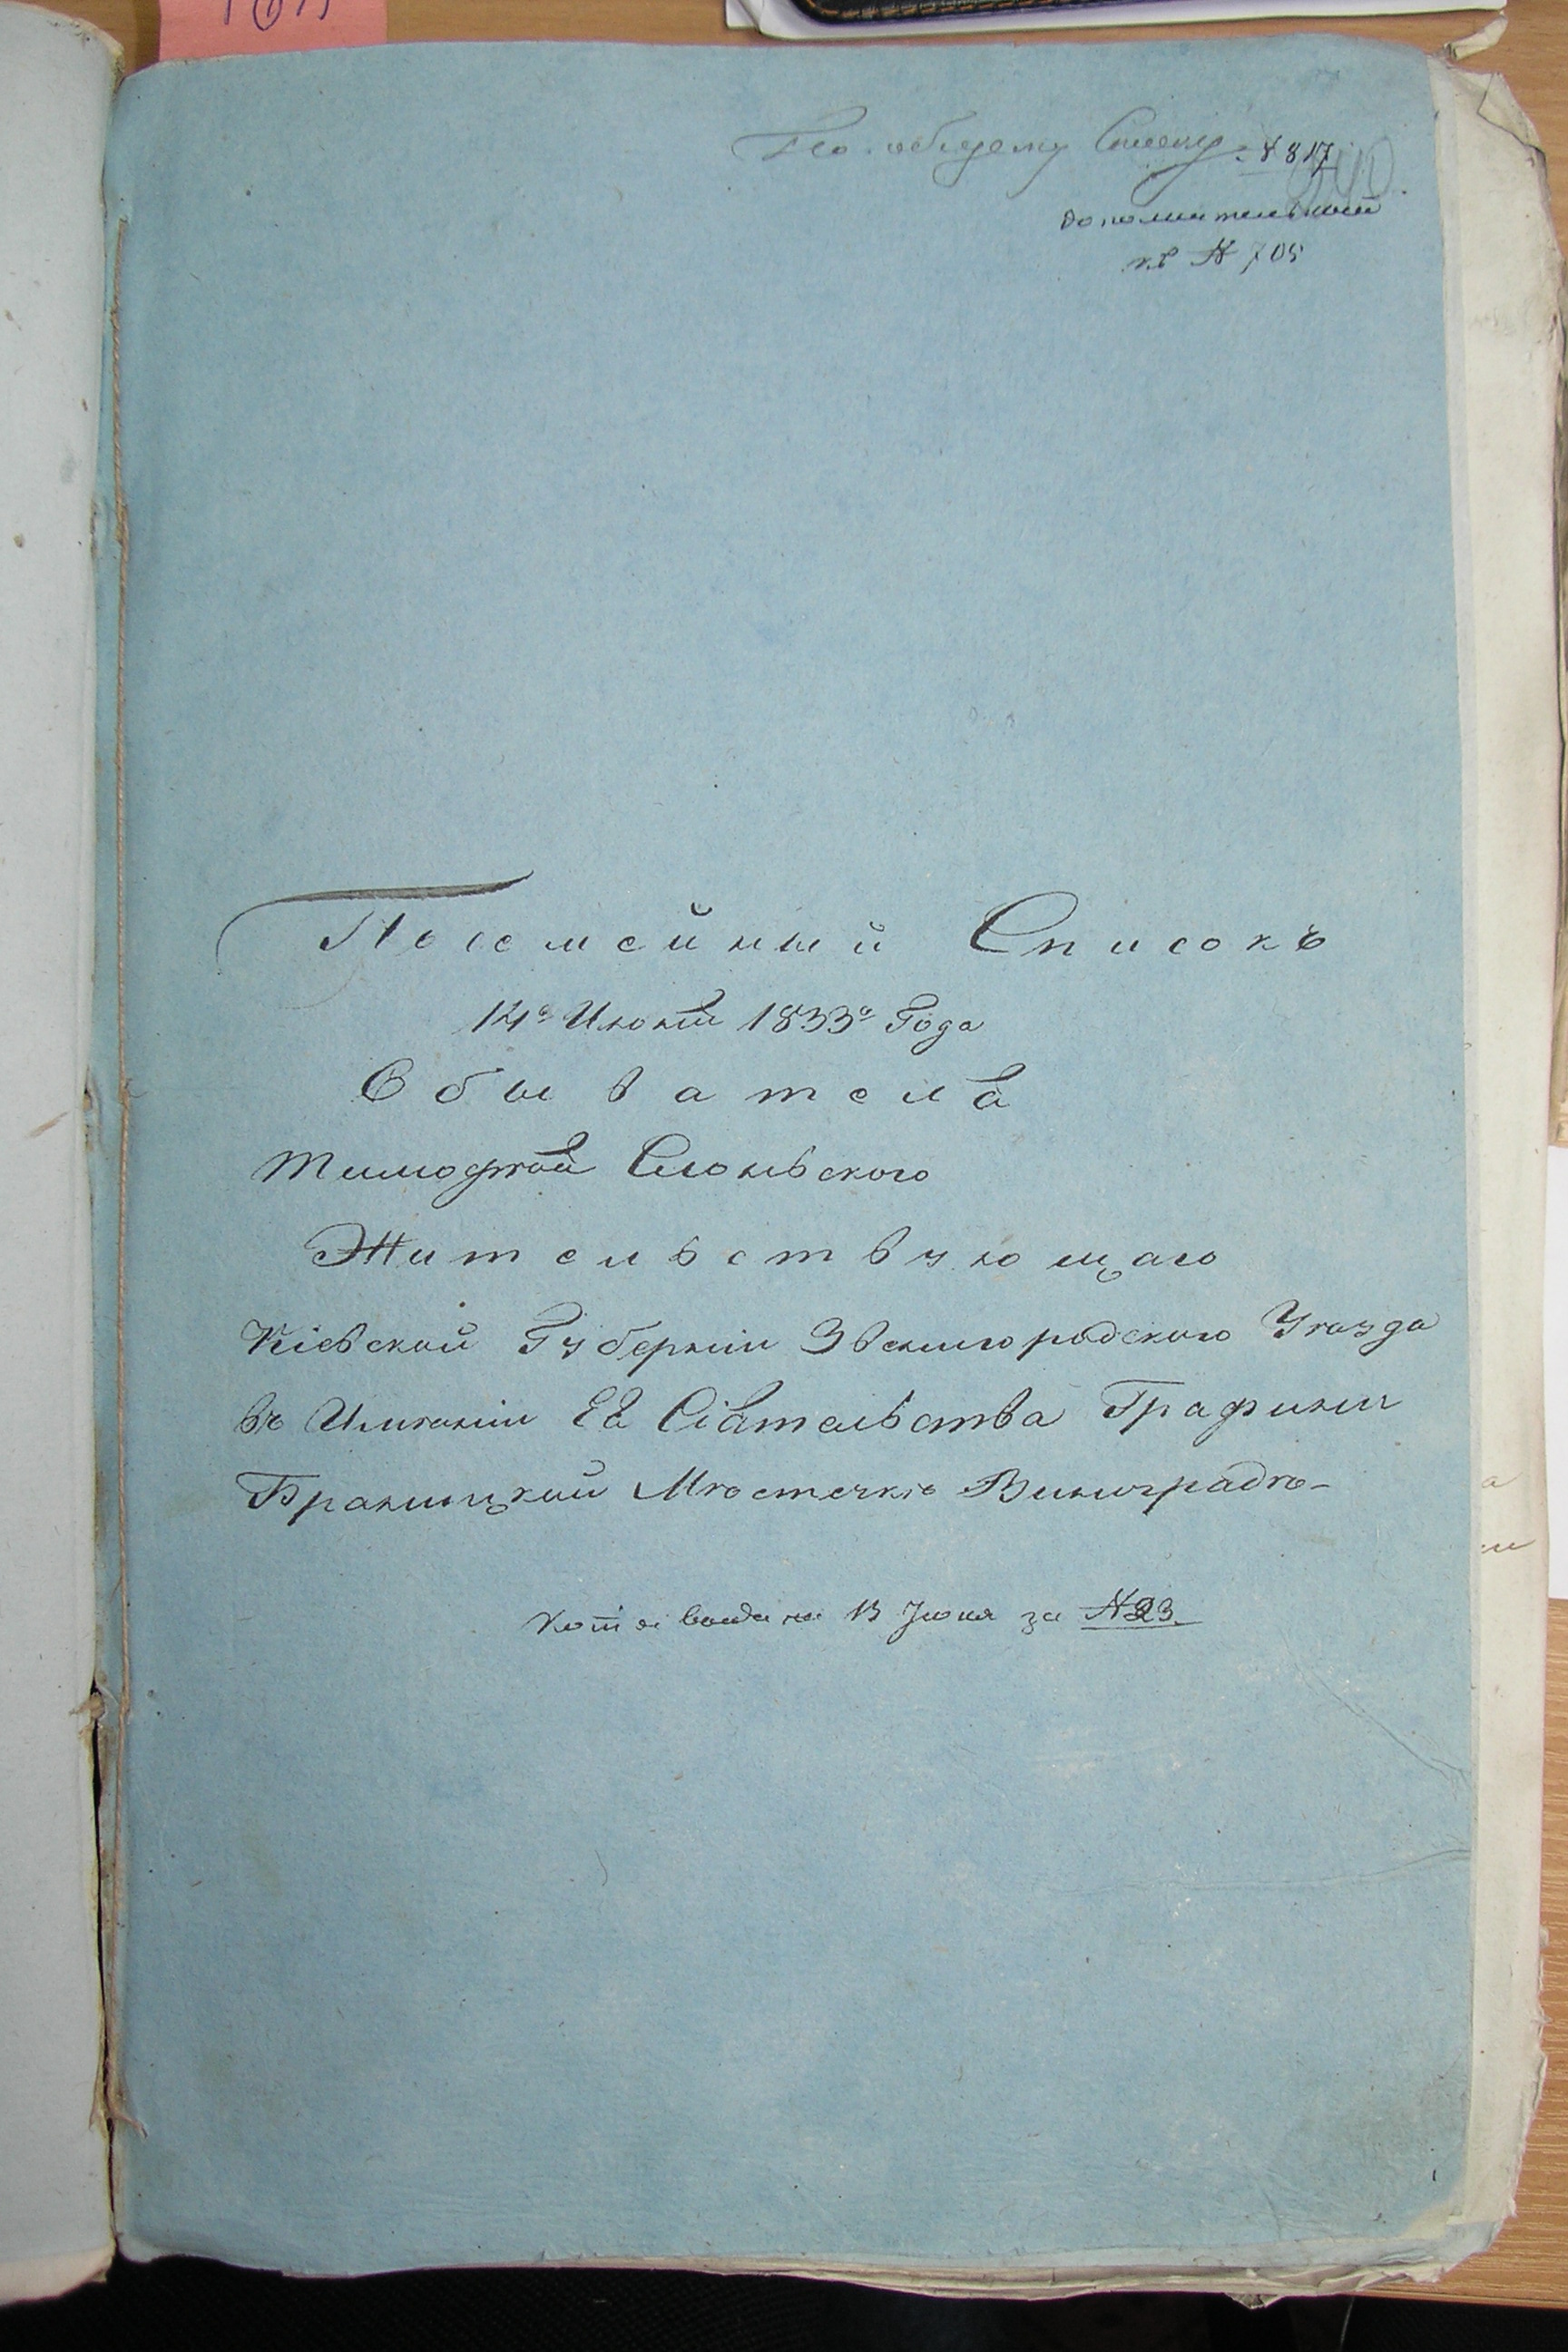 По общему Списку № 817
дополнительный
къ № 705
Посемейный Списокъ
14го Июня 1833го Года
Обывателя
Тимофѣя Слоньвского
Жительствующаго
Кіевской Губерніи Звенигородского Уѣзда
въ Имѣніи Ея Сіятельства Графини
Браницкой Мѣстечкѣ Виноградѣ-
Копія выдана 13 Іюня за №23.